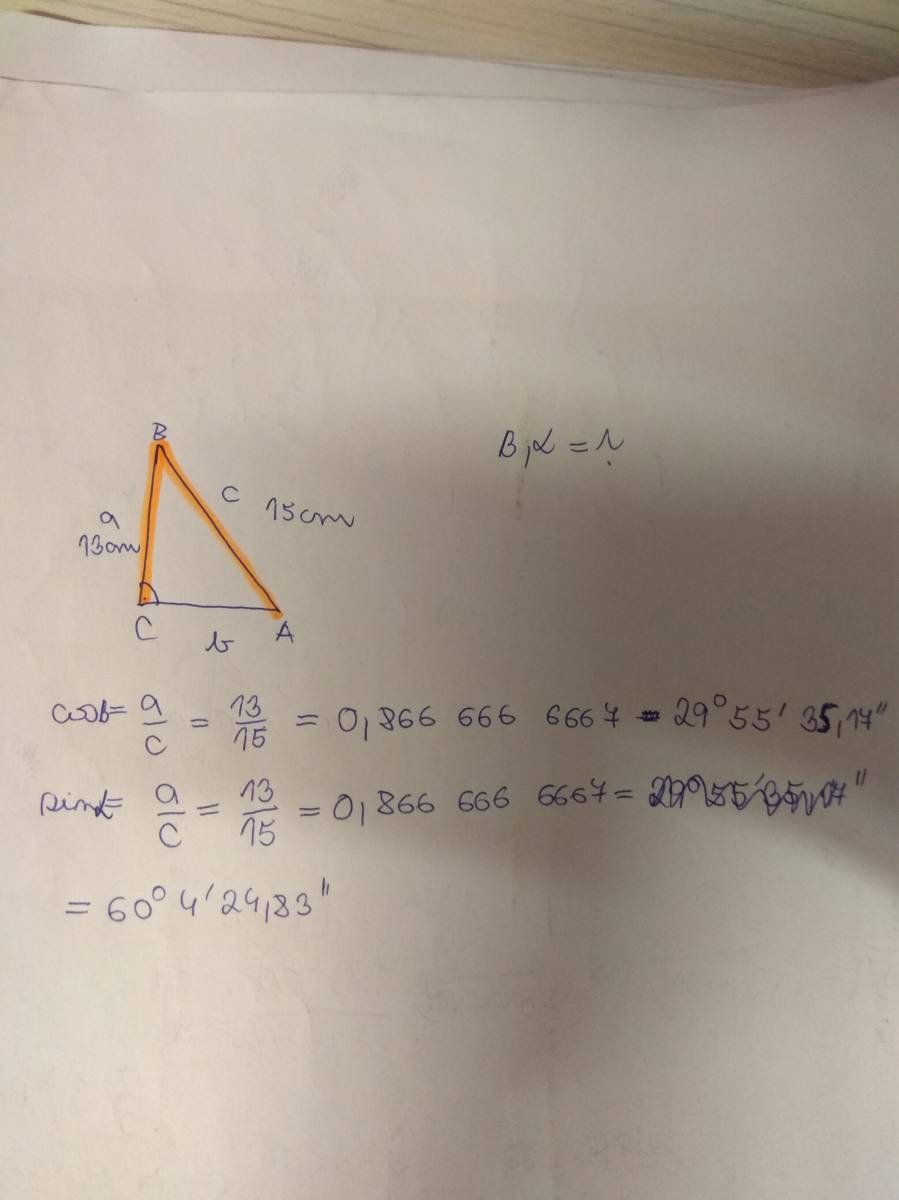 B
B,α = ?
c
15cm
a
13cm
C
b
A
cosβ= a/c = 13/15 = 0,866 666 6667 = 29° 55' 35,17"
sinα= a/c = 13/15 = 0,866 666 6667 =
= 60° 4' 24,83"